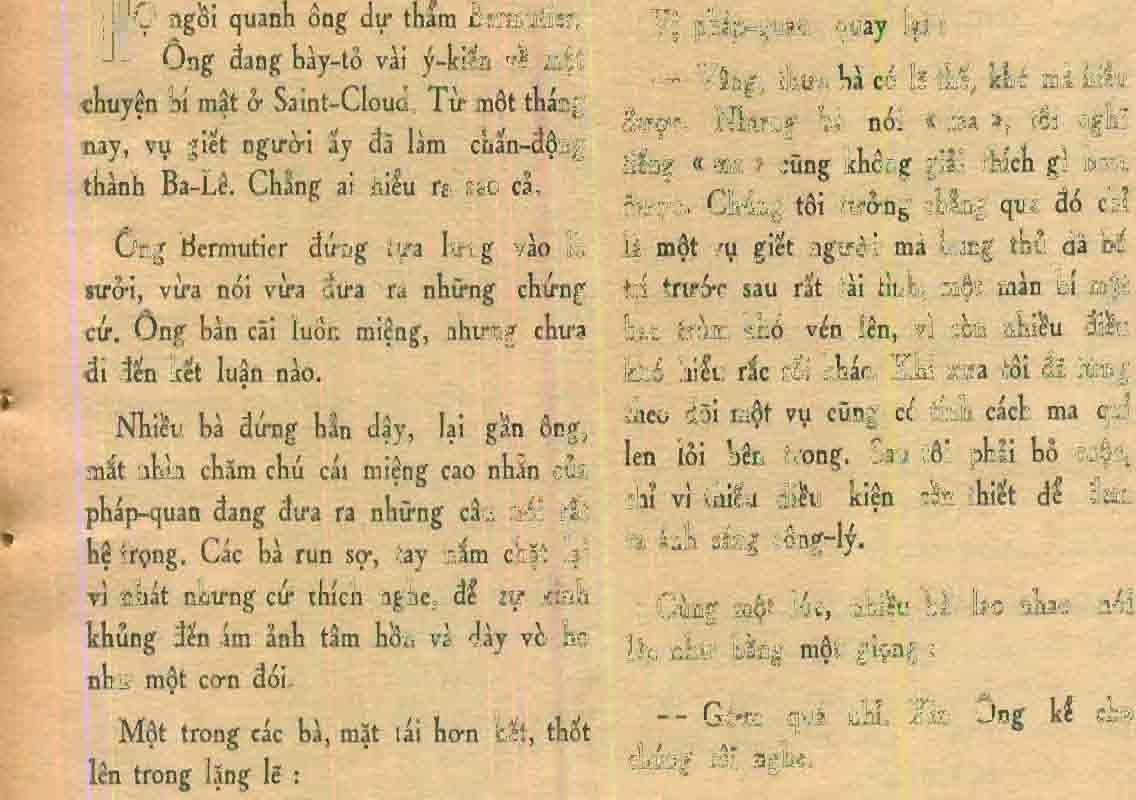 Ọ ngồi quanh ông dự thẩm Bermutier.
Ông đang bày-tỏ vài ý-kiến về một
chuyện bí mật ở Saint-Cloud. Từ một tháng
nay, vụ giết người ấy đã làm chấn-động
thành Ba-Lê. Chẳng ai hiểu ra sao cả.
Ông Bermutier đứng tựa lưng vào lò
sưởi, vừa nói vừa đưa ra những chứng
cứ. Ông bàn cãi luôn miệng, nhưng chưa
đi đến kết luận nào.
Nhiều bà đứng hẳn dậy, lại gần ông,
mắt nhìn chăm chú cái miệng cao nhẵn của
pháp-quan đang đưa ra những câu nói rất
hệ trọng. Các bà run sợ, tay nắm chặt lại
vì nhát nhưng cứ thích nghe, để sự kinh
khủng đến ám ảnh tâm hồn và dày vò họ
như một cơn đói.
Một trong các bà, mặt tái hơn hết, thốt
lên trong lặng lẽ :
Vị pháp-quan quay lại :
-- Vâng, thưa bà có lẽ thế, khó mà hiểu
được. Nhưng bà nói « ma », tôi nghĩ
tiếng « ma » cũng không giải thích gì
được. Chúng tôi tưởng chẳng qua đó chỉ
là một vụ giết người mà hung thủ đã bố
trí trước sau rất tài tình, một màn bí mật
bao trùm khó vén lên, vì còn nhiều điều
khó hiểu rắc rối khác. Khi xưa tôi đã từng
theo dõi một vụ cũng có tính cách ma quỉ
len lỏi bên trong. Sau tôi phải bỏ cuộc,
chỉ vì thiếu điều kiện cần thiết để đem
ra ánh sáng công-lý.
Cùng một lúc, nhiều bà lao nhao nói
lên như bằng một giọng :
-- Gớm quá nhỉ. Xin Ông kể cho
chúng tôi nghe.